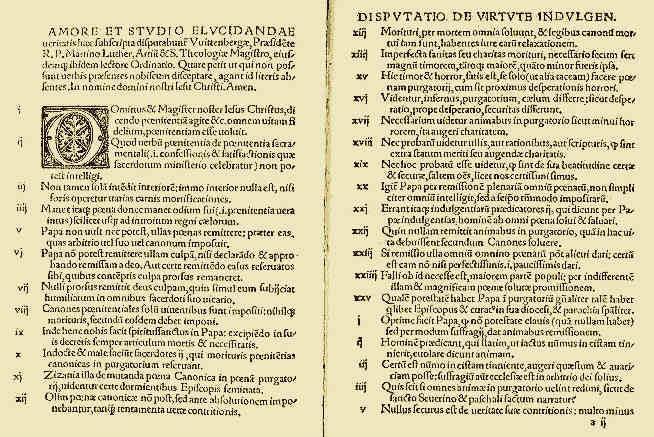 AMORE ET STVDIO ELVCIDANDAE
ueritatis hæc subscripta disputabunť Vuittenbergæ, Præsidẽte
R. P. Martino Luther, Artiũ & S. Theologiæ Magistro, eius-
demq; ibidem lectore Ordinario. Quare petit ut qui non pos-
sunt uerbis præsentes nobiscum disceptare, agant id literis ab-
sentes. In nomine domini nostri Iesu Christi. Amen.
i DOminus & Magister noster Iesus Christus, di-
cendo pœnitentiã agite &c. omnem uitam fi
delium, pœnitentiam esse uoluit.
ij Quod uerbũ pœnitentia de pœnitentia sacra-
mentali (.i. confessionis & satisfactionis quæ
sacerdotum ministerio celebratur) non po-
test intelligi.
iij Non tamen solã intẽdit interiorẽ: immo interior nulla est, nisi
foris operetur uarias carnis mortificationes.
iiij Manet itaq; pœna donec manet odium sui (.i. pœnitentia uera
intus) scilicet usq; ad introitum regni cœlorum.
v Papa non uult nec potest, ullas pœnas remittere; præter eas,
quas arbitrio uel suo uel canonum imposuit.
vj Papa nõ potest remittere ullam culpã, nisi declarãdo & appro-
bando remissam a deo, Aut certe remittẽdo casus reseruatos
sibi, quibus contẽptis culpa prorsus remaneret.
vij Nulli prorsus remittit deus culpam, quin simul eum subijciat
humiliatum in omnibus sacerdoti suo uicario,
viij Canones pœnitentiales solũ uiuentibus sunt impositi; nihilq;
morituris, secundũ eosdem debet imponi.
ix Inde bene nobis facit spiritussanctus in Papa: excipiẽdo in su-
is decretis semper articulum mortis & necessitatis.
x Indocte & male faciũt sacerdotes ij, qui morituris pœnitẽtias
canonicas in purgatorium reseruant.
xj Zizania illa de mutanda pœna Canonica in pœnã purgato-
rij, uidentur certe dormientibus Episcopis seminata.
xij Olim pœnæ canonicæ nõ post, sed ante absolutionem impo-
nebantur, tanq̃ tentamenta ueræ contritionis,
DISPVTATIO DE VIRTVTE INDVLGEN.
xiij Morituri, per mortem omnia soluunt, & legibus canonũ mor-
tui iam sunt, habentes iure earũ relaxationem.
xiiij Imperfecta sanitas seu charitas morituri, necessario secum fert
magnũ timorem, tãtoq; maiorẽ, quãto minor fuerit ipsa.
xv Hic timor & horror, satis est, se solo (ut alia taceam) facere pœ-
nam purgatorij, cum sit proximus desperationis horrori.
xvj Videntur, infernus, purgatorium, cælum differre; sicut despe-
ratio, prope desperatio, securitas differunt.
xvij Necessarium uidetur animabus in purgatorio sicut minui hor
rorem, ita augeri charitatem.
xviij Nec probatũ uidetur ullis, aut rationibus, aut scripturis, q̃ sint
extra statum meriti seu augendæ charitatis.
xix Nec hoc probatũ esse uidetur, q̃ sint de sua beatitudine certæ
& securæ, saltem oẽs, licet nos certissimi simus.
xx Igiť Papa per remissionẽ plenariã omniũ pœnarũ, non simpli
citer omniũ intelligit, sed a seipo tm̃modo impositarũ.
xxj Errant itaq; indulgentiarũ prædicatores ij, qui dicunt per Pa-
pæ indulgentias, hominẽ ab omni pœna solui & saluari.
xxij Quin nullam remittit animabus in purgatorio, quã in hac ui-
ta debuissent secundum Canones soluere.
xxiij Si remissio ulla omniũ omnino pœnarũ põt alicui dari; certũ
est eam nõ nisi perfectissimis, .i. paucissimis dari.
xxiiij Falli ob id necesse est, maiorem partẽ populi; per indifferentẽ
illam & magnificam pœnæ solutæ promissionem.
xxv Qualẽ potestatẽ habet Papa ĩ purgatoriũ gñaliter talẽ habet
quilibet Episcopus & curatus in sua diocesi, & parochia spãliter.
i Optime facit Papa, q̃ nõ potestate clauis (quã nullam habet)
sed per modum suffragij, dat animabus remissionem.
ij Hominẽ prædicant, qui statim, ut iactus nũmus in cistam tin-
nierit, euolare dicunt animam.
iij Certũ est nũmo in cistam tinniente, augeri quæstum & auari-
ciam posse; suffragiũ aũt ecclesiæ est in arbitrio dei solius.
iiij Quis scit, si omnes animæ in purgatorio uelint redimi, sicut de
sancto Seuerino & paschali factum narratur
v Nullus securus est de ueritate suæ contritionis; multo minus
a ij